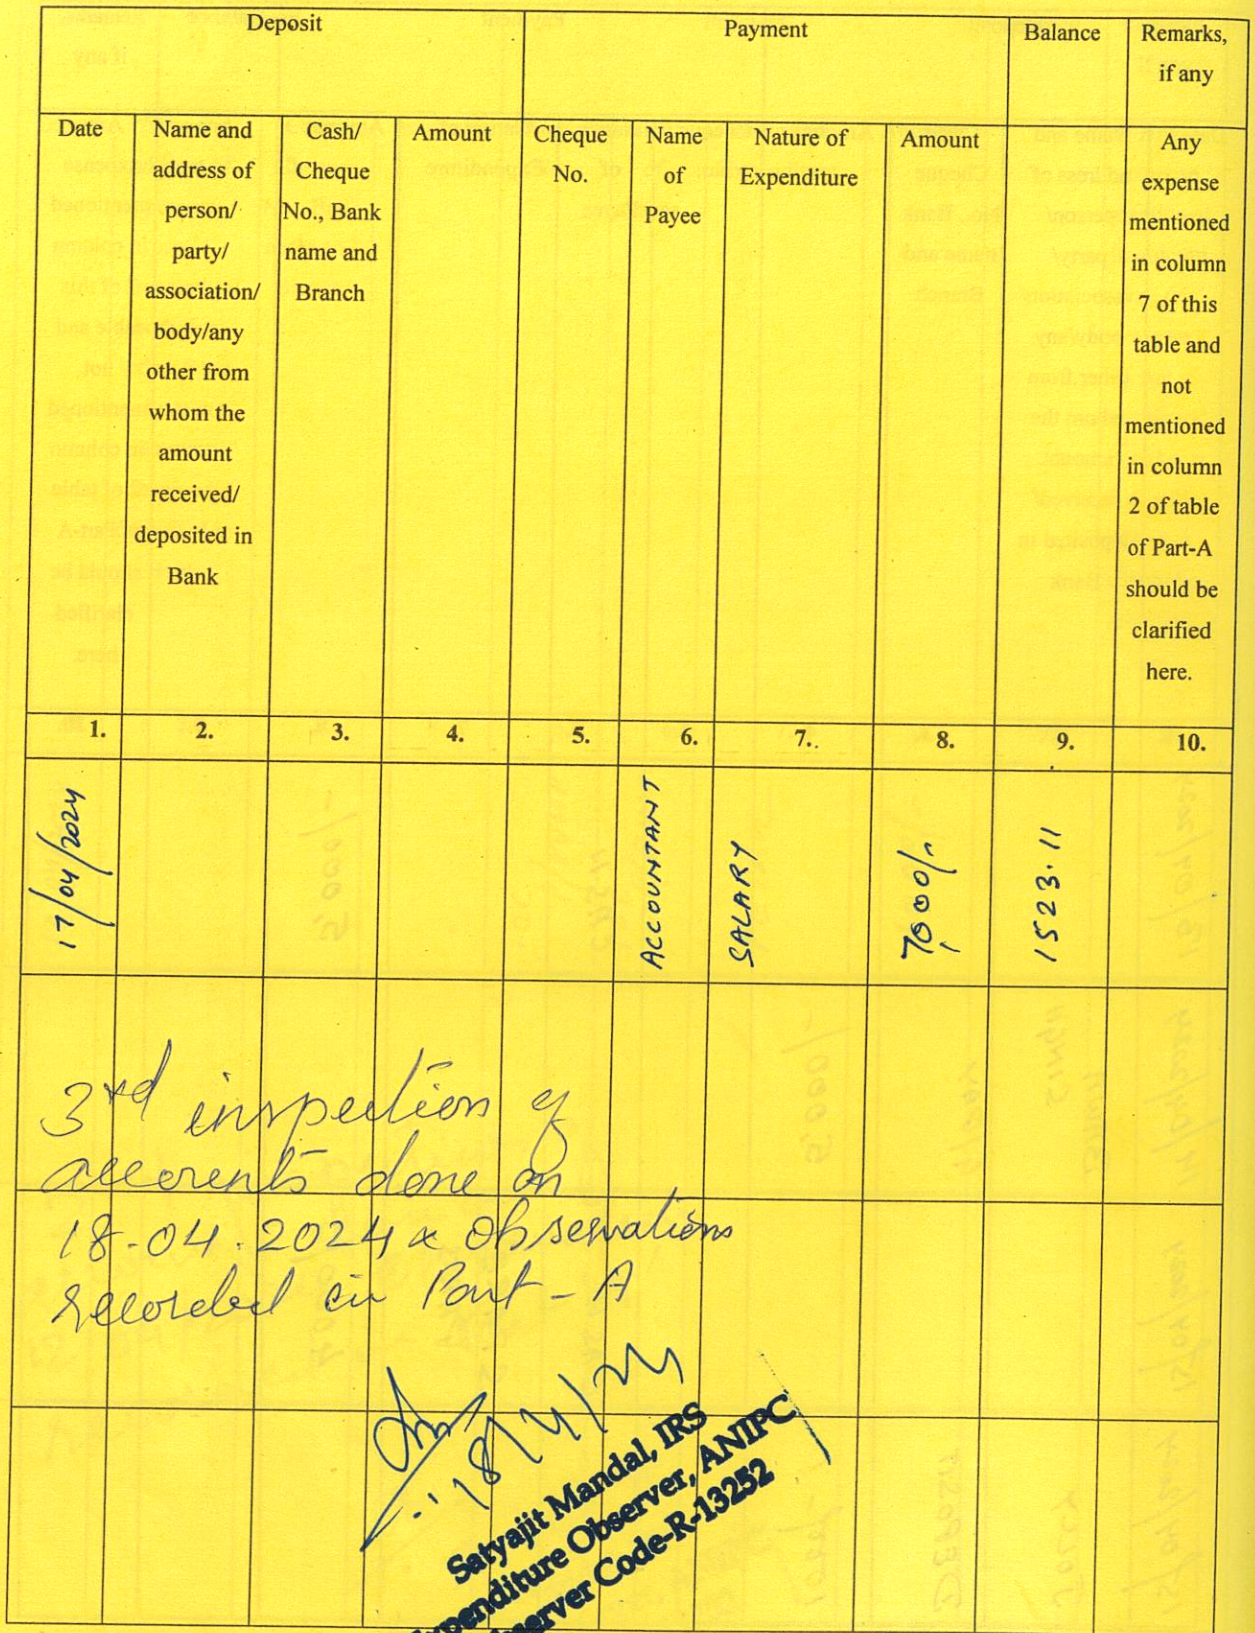 Deposit Payment Balance Remarks, if any
Date
Name and
address of
person/
party/
association/
body/any
other from
whom the
amount
received/
deposited in
Bank
Cash/
Cheque
No., Bank
name and
Branch
Amount
Cheque
No.
Name
of
Payee
Nature of
Expenditure
Amount
Any
expense
mentioned
in column
7 of this
table and
not
mentioned
in column
2 of table
of Part-A
should be
clarified
here.
1. 2. 3. 4. 5. 6. 7. 8. 9. 10.
17/04/2024 ACCOUNTANT SALARY 7,000/- 1523.11
3rd inspection of
accounts done on
18-04.2024 & Observations
recorded in Part-A
18/4/24
Satyajit Mandal, IRS
penditure Observer, ANIPC
server Code-R-13252